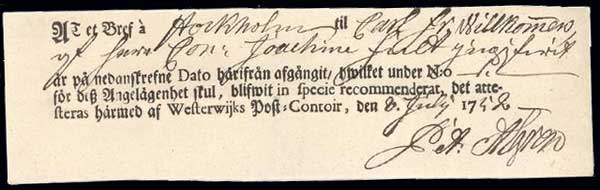 AT et Bref à Stockholm til Carl Fr. Willkommen
af herr Con:
är på nedanskrefne Dato härifrån afgångit, hwilket under N:o 1.
för deß Angelägenhet skul, blifwit in specie recommenderat, det atte-
steras härmed af Westerwijks Post-Contoir, den 8. July 1752
P. A.